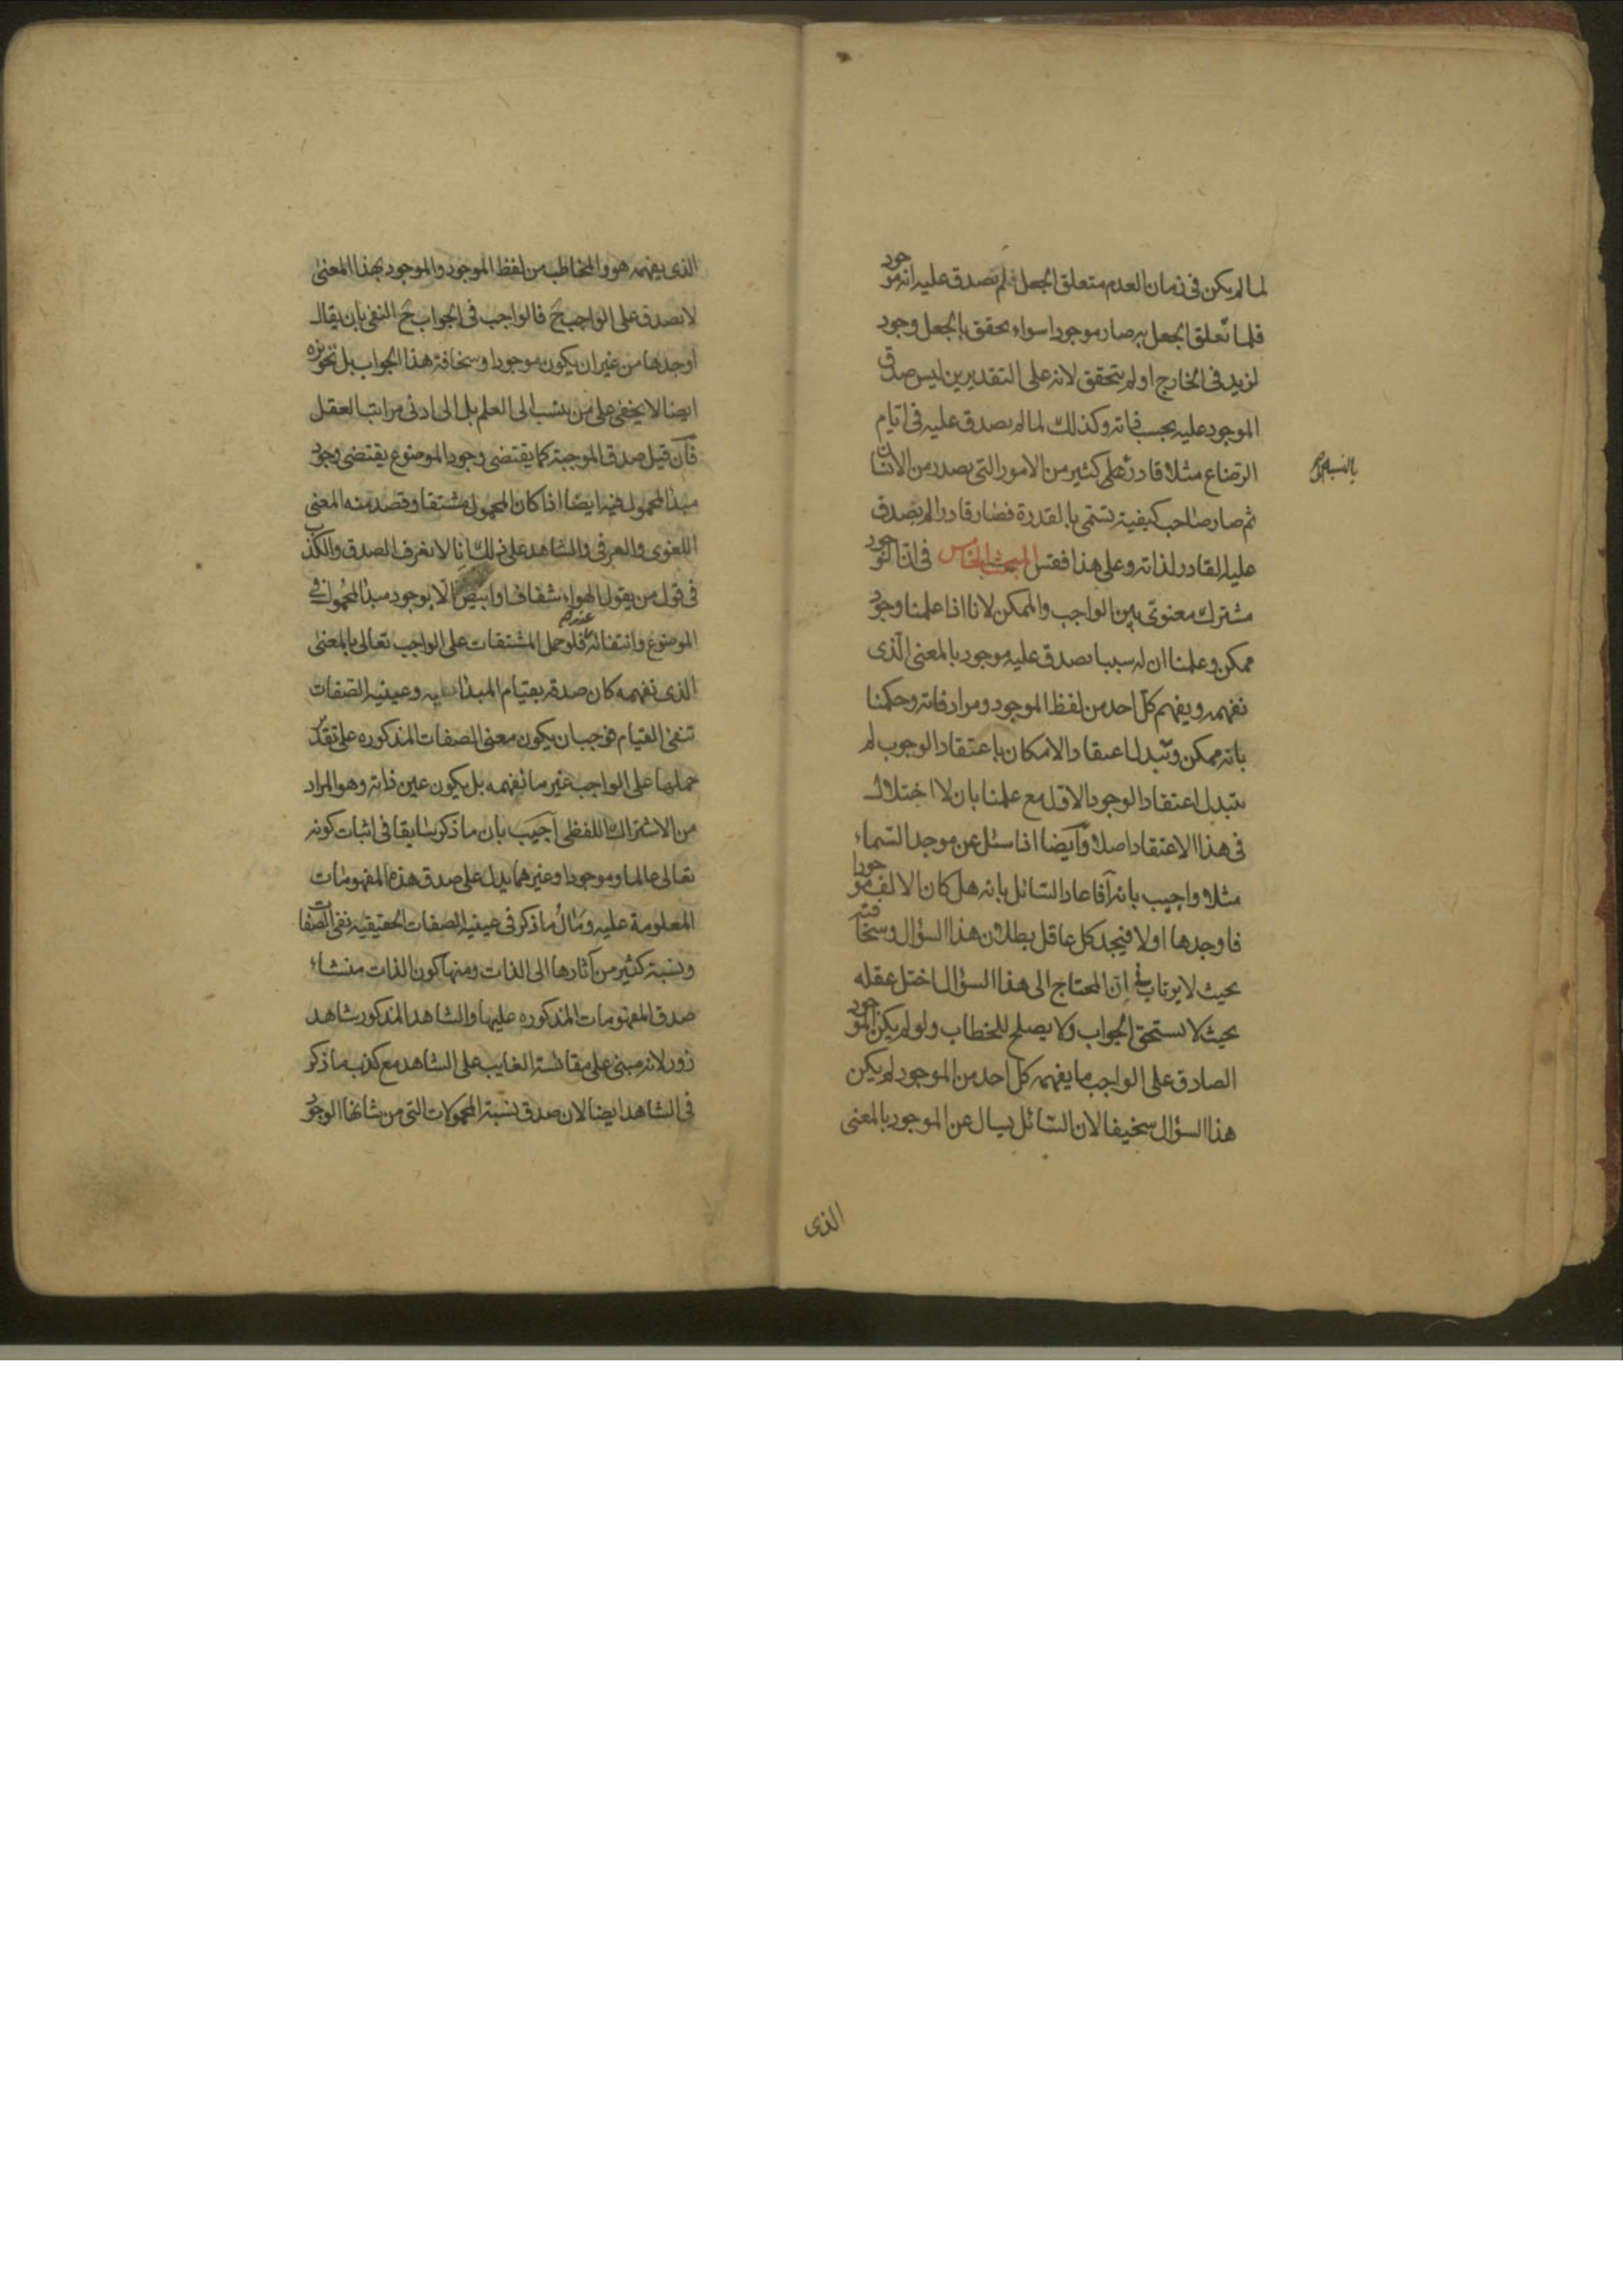 لما لم يكن فى زمان العدم متعلق الجعل لم يصدق عليه انه موجود
فلما تعلق الجعل به صار موجودا سواء تحقق بالجعل وجود
لزيد فى الخارج او لم يتحقق لانه على التقديرين ليس صدق
الموجود عليه بحسب ذاته وكذلك لما لم يصدق عليه فى ايام
الرضاع مثلا قادر على كثير من الامور التى يصدر من الانسان
ثم صار صاحب كيفية تسمى بالقدرة فصار قادرا لم يصدق
عليه القادر لذاته وعلى هذا فقس المبحث الخامس فى ان الموجود
مشترك معنوى بين الواجب والممكن لانا اذا علمنا وجود
ممكن وعلمنا ان له سببا يصدق عليه موجود بالمعنى الذى
نفهمه ويفهم كل احد من لفظ الموجود ومرادفاته وحكمنا
بانه ممكن وتبدل اعتقاد الامكان باعتقاد الوجوب لم
يتبدل اعتقاد الوجود الاول مع علمنا بان لا اختلال
فى هذا الاعتقاد اصلا وايضا اذا سئل عن موجد السماء
مثلا واجيب بانه آ فاعاد السائل بانه هل كان الالف موجودا
فاوجدها اولا فيجد كل عاقل بطلان هذا السؤال وسخافته
بحيث لا يرتاب فى ان المحتاج الى هذا السؤال اختل عقله
بحيث لا يستحق الجواب ولا يصلح للخطاب ولو لم يكن الموجود
الصادق على الواجب ما يفهمه كل احد من الموجود لم يكن
هذا السؤال سخيفا لان السائل يسال عن الموجود بالمعنى
الذى
الذى يفهمه هو والمخاطب من لفظ الموجود والموجود بهذا المعنى
لا يصدق على الواجب ح فالواجب فى الجواب ح النفى بان يقال
اوجدها من غير ان يكون موجودا وسخافة هذا الجواب بل تجويزه
ايضا لا يخفى على من ينسب الى العلم بل الى ادنى مراتب العقل
فان قيل صدق الموجبة كما يقتضى وجود الموضوع يقتضى وجود
مبدا المحمول فيه ايضا اذا كان المحمول مشتقا وقصد منه المعنى
اللغوى والعرفى والشاهد على ذلك انا لا نعرف الصدق والكذب
فى قول من يقول الهواء شفاف او ابيض الا بوجود مبدا المحمول فى
الموضوع وانتفائه عندهم فلو حمل المشتقات على الواجب تعالى بالمعنى
الذى نفهمه كان صدقه بقيام المبدا به وعينية الصفات
تنفى القيام فوجب ان يكون معنى الصفات المذكوره على تقدير
حملها على الواجب غير ما نفهمه بل يكون عين ذاته وهو المراد
من الاشتراك اللفظى اجيب بان ما ذكر سابقا فى اثبات كونه
تعالى عالما وموجودا وغيرهما يدل على صدق هذه المفهومات
المعلومة عليه ومآل ما ذكر فى عينية الصفات الحقيقيه نفى الصفات
ونسبة كثير من آثارها الى الذات ومنها كون الذات منشاء
صدق المفهومات المذكوره عليها والشاهد المذكور شاهد
زور لانه مبنى على مقائسة الغايب على الشاهد مع كذب ما ذكر
فى الشاهد ايضا لان صدق نسبة المحمولات التى من شانها الوجود